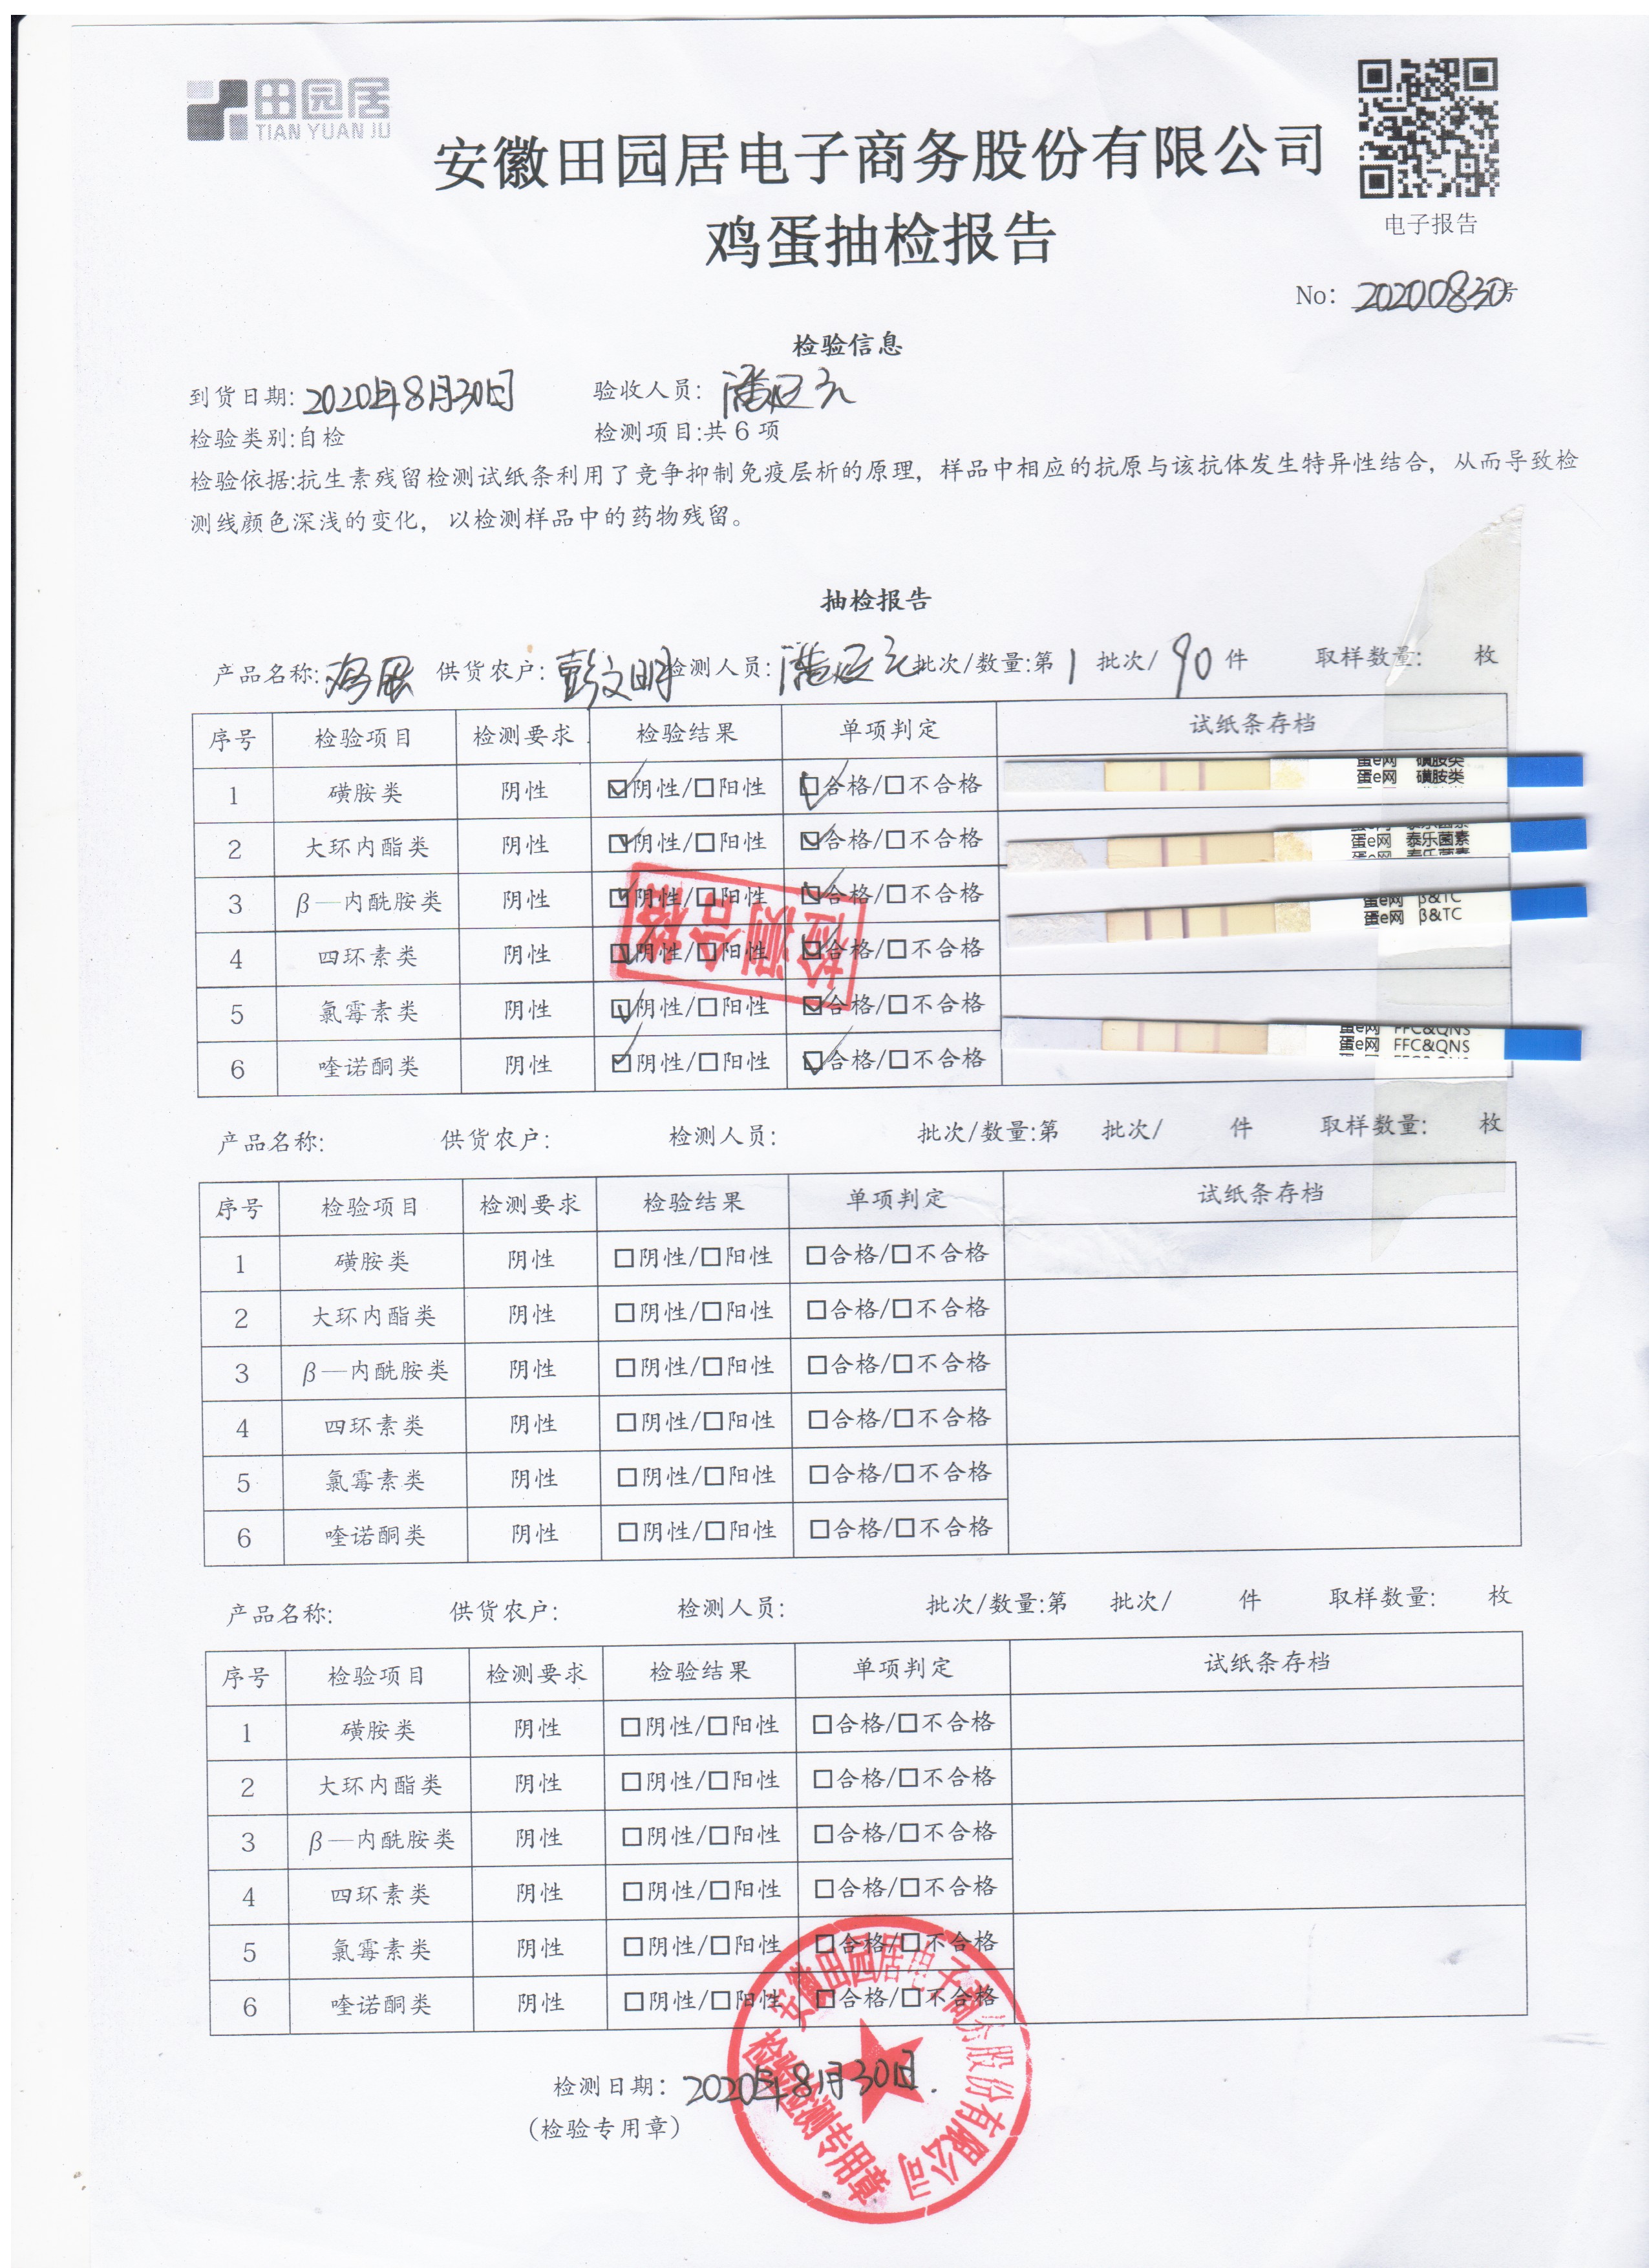 田园居
TIAN YUAN JU
安徽田园居电子商务股份有限公司
鸡蛋抽检报告
电子报告
No: 20200830号
检验信息
到货日期:2020年8月30日 验收人员:
检验类别:自检 检测项目:共6项
检验依据:抗生素残留检测试纸条利用了竞争抑制免疫层析的原理，样品中相应的抗原与该抗体发生特异性结合，从而导致检
测线颜色深浅的变化，以检测样品中的药物残留。
抽检报告
产品名称: 供货农户:彭文明 检测人员: 批次/数量:第1批次/90件 取样数量: 枚
序号 检验项目 检测要求 检验结果 单项判定 试纸条存档
1 磺胺类 阴性 ☑阴性/□阳性 ☑合格/□不合格 蛋e网 磺胺类
蛋e网 磺胺类
2 大环内酯类 阴性 ☑阴性/□阳性 ☑合格/□不合格 蛋e网 泰乐菌素
3 β—内酰胺类 阴性 ☑阴性/□阳性 ☑合格/□不合格 蛋e网 β&TC
蛋e网 β&TC
4 四环素类 阴性 ☑阴性/□阳性 ☑合格/□不合格
检测合格
5 氯霉素类 阴性 ☑阴性/□阳性 ☑合格/□不合格 蛋e网 FFC&QNS
蛋e网 FFC&QNS
6 喹诺酮类 阴性 ☑阴性/□阳性 ☑合格/□不合格
产品名称: 供货农户: 检测人员: 批次/数量:第 批次/ 件 取样数量: 枚
序号 检验项目 检测要求 检验结果 单项判定 试纸条存档
1 磺胺类 阴性 □阴性/□阳性 □合格/□不合格
2 大环内酯类 阴性 □阴性/□阳性 □合格/□不合格
3 β—内酰胺类 阴性 □阴性/□阳性 □合格/□不合格
4 四环素类 阴性 □阴性/□阳性 □合格/□不合格
5 氯霉素类 阴性 □阴性/□阳性 □合格/□不合格
6 喹诺酮类 阴性 □阴性/□阳性 □合格/□不合格
产品名称: 供货农户: 检测人员: 批次/数量:第 批次/ 件 取样数量: 枚
序号 检验项目 检测要求 检验结果 单项判定 试纸条存档
1 磺胺类 阴性 □阴性/□阳性 □合格/□不合格
2 大环内酯类 阴性 □阴性/□阳性 □合格/□不合格
3 β—内酰胺类 阴性 □阴性/□阳性 □合格/□不合格
4 四环素类 阴性 □阴性/□阳性 □合格/□不合格
5 氯霉素类 阴性 □阴性/□阳性 □合格/□不合格
6 喹诺酮类 阴性 □阴性/□阳性 □合格/□不合格
安徽田园居电子商务股份有限公司
检验检测专用章
检测日期: 2020年8月30日.
(检验专用章)